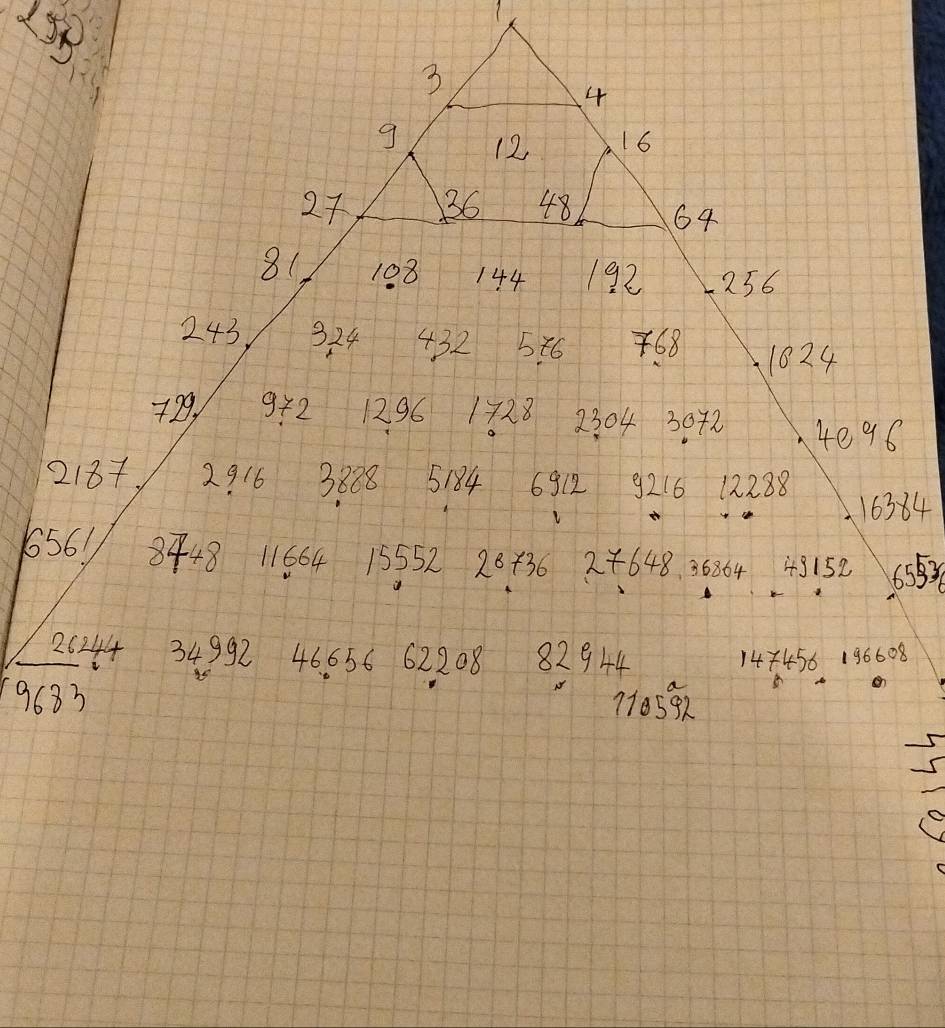 1
3 4
9 12 16
27 36 48 64
81 108 144 192 256
243 324 432 576 768 1024
729 972 1296 1728 2304 3072 4096
2187 2916 3888 5184 6912 9216 12288 16384
6561 8748 11664 15552 20736 27648 36864 49152 65536
19683 26244 34992 46656 62208 82944 110592 147456 196608